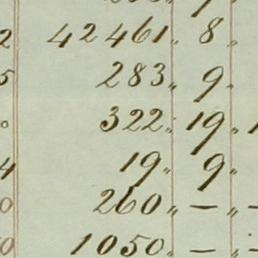 2 42461 " 8 "
5 283 " 9 "
0 322 " 19 " 1
4 19 " 9 "
0 260 " — " —
0 1050 " — " —